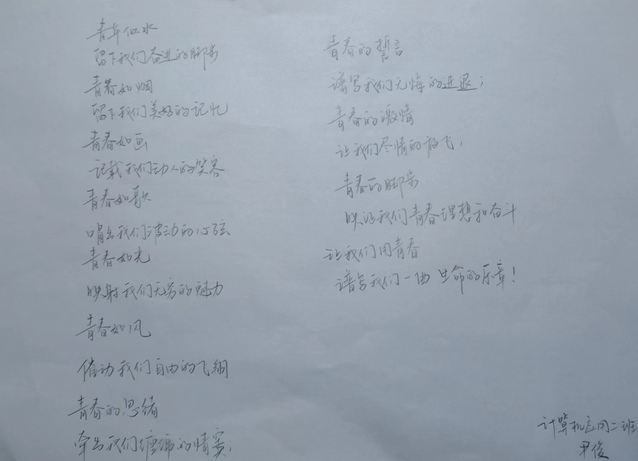 青年似水
留下我们奋进的脚步
青春如烟
留下我们美好的记忆
青春如画
记载我们动人的笑容
青春如歌
唱出我们律动的心弦
青春如光
映射我们无穷的魅力
青春如风
催动我们自由的飞翔
青春的思绪
牵出我们缠绵的情窦,
青春的誓言
谱写我们无悔的进退;
青春的激情
让我们尽情的放飞,
青春的脚步
映的我们青春理想和奋斗
让我们用青春
谱写我们一曲生命的乐章!
计算机 二班